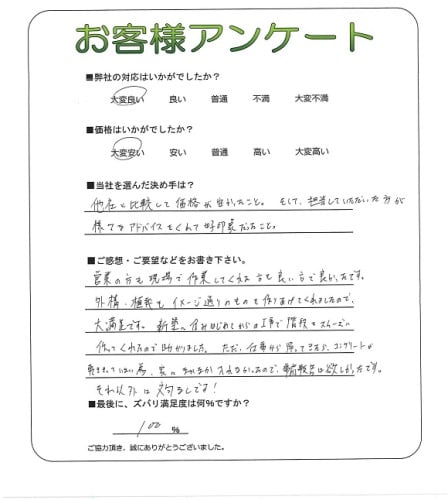 お客様アンケート
■弊社の対応はいかがでしたか?
大変良い 良い 普通 不満 大変不満
■価格はいかがでしたか?
大変安い 安い 普通 高い 大変高い
■当社を選んだ決め手は?
他社と比較して価格が安かったこと。そして、担当していただいた方が
様々なアドバイスをくれて好印象だったこと。
■ご感想・ご要望などをお書き下さい。
営業の方も現場で作業してくれた方も良い方で良かったです。
外構・植栽もイメージ通りのものを作りあげてくれましたので、
大満足です。新築、住みはじめてからの工事で階段をスムーズに
作ってくれたので助かりました。ただ、仕事から帰ってきたら、コンクリートが
なっていた為、家の 入れなかったので、 は欲しかったです。
それ以外は 
■最後に、ズバリ満足度は何%ですか?
100 %
ご協力頂き、誠にありがとうございました。